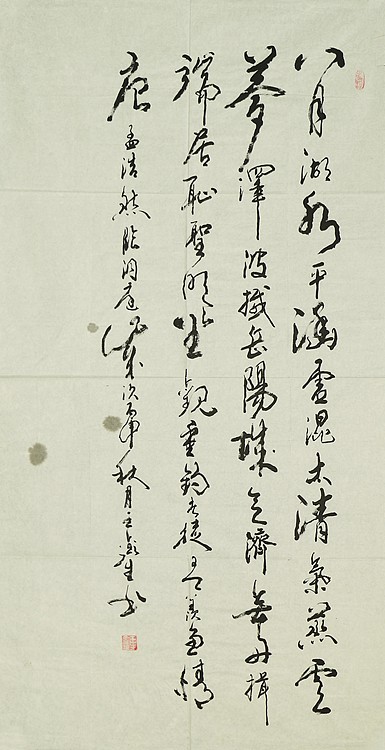 八月湖水平涵虛混太清氣蒸雲
夢澤波撼岳陽城欲濟無舟楫
端居恥聖明坐觀垂釣者徒有羨魚情
唐孟浩然臨洞庭歲次丙申秋月王生书